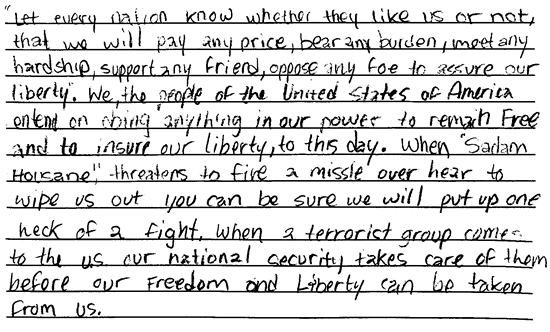 "Let every nation know whether they like us or not,
that we will pay any price, bear any burden, meet any
hardship, support any friend, oppose any foe to assure our
liberty". We, the people of the United States of America
entend on doing "anything in our power to remain Free
and to insure our liberty, to this day. When "Sadam
Housane", threatens to fire a missle over hear to
wipe us out you can be sure we will put up one
heck of a fight. When a terrorist group comes
to the us our national security takes care of them
before our Freedom and Liberty can be taken
From us.